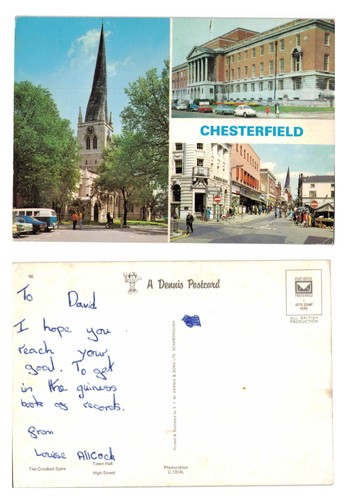 CHESTERFIELD
A Dennis Postcard
To David
I hope you
reach your
goal. To get
in the guiness
book of records.
from
Louise Allcock
The Crooked Spire
Town Hall
High Street
Photocolour
ALL BRITISH
PRODUCTION